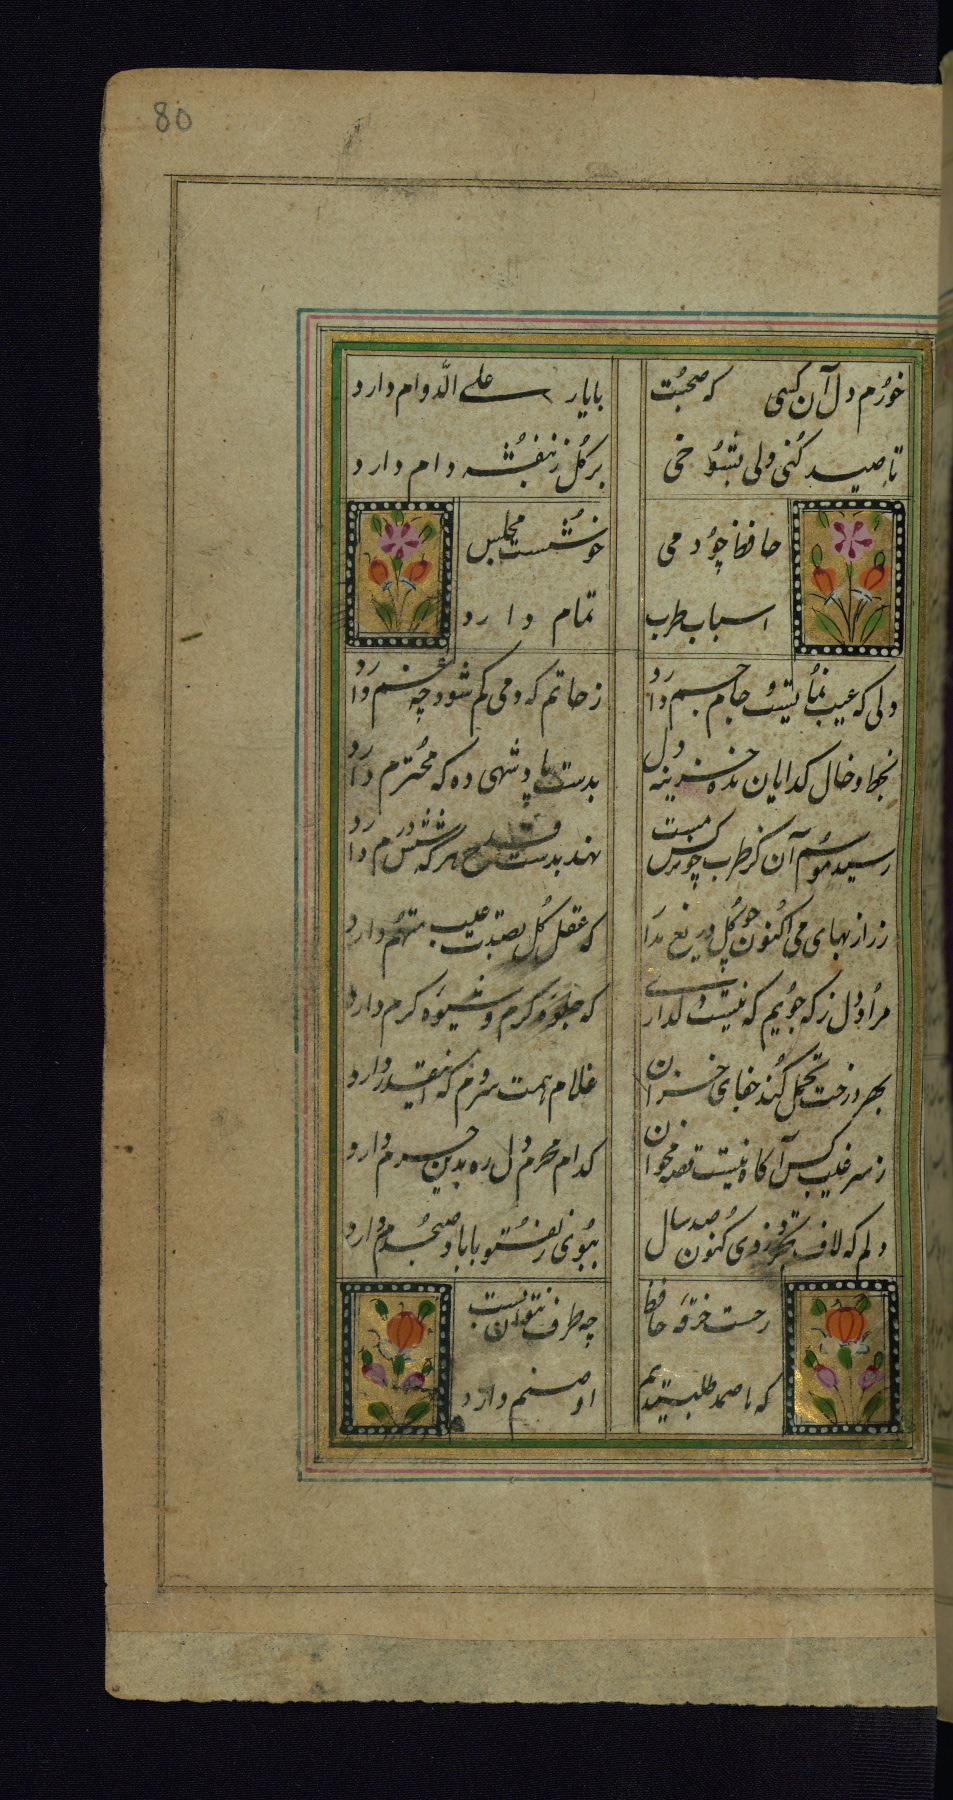 80
خورم دل آن کسی که صحبت
بایار علی الدوام دارد
تا صید کنی ولی بتو خی
بر گل ز بنفشه دام دارد
حافظ چو دمی
خوشست مجلس
اسباب طرب
تمام دارد
دلی که غیب نمایست و جام جم دارد
ز خاتم که دمی کم شود چه غم دارد
بخط و خال کدایان مده خزینه دل
بدست پادشهی ده که محترم دارد
رسید موسم آن کز طرب چو نرکس مست
نهد بدست قدح هرکه شش درم دارد
زر از بهای می اکنون چو کل دریغ مدار
که عقل کل بصدت عیب متهم دارد
مراد دل ز که جویم که نیست دلداری
که جلوه کرم و شیوه کرم دارد
نه هر درخت تحمل کند جفای خزان
غلام همت سروم که اینقدر دارد
ز سر غیب کس آکاه نیست قصه مخوان
کدام محرم دل ره بدین حرم دارد
دلم که لاف تجرد زدی کنون صد سال
ببوی زلف تو با باد صبحدم دارد
خرقه حافظ
چه طرف بتوان بست
که ما صمد طلبیدیم
او صنم دارد